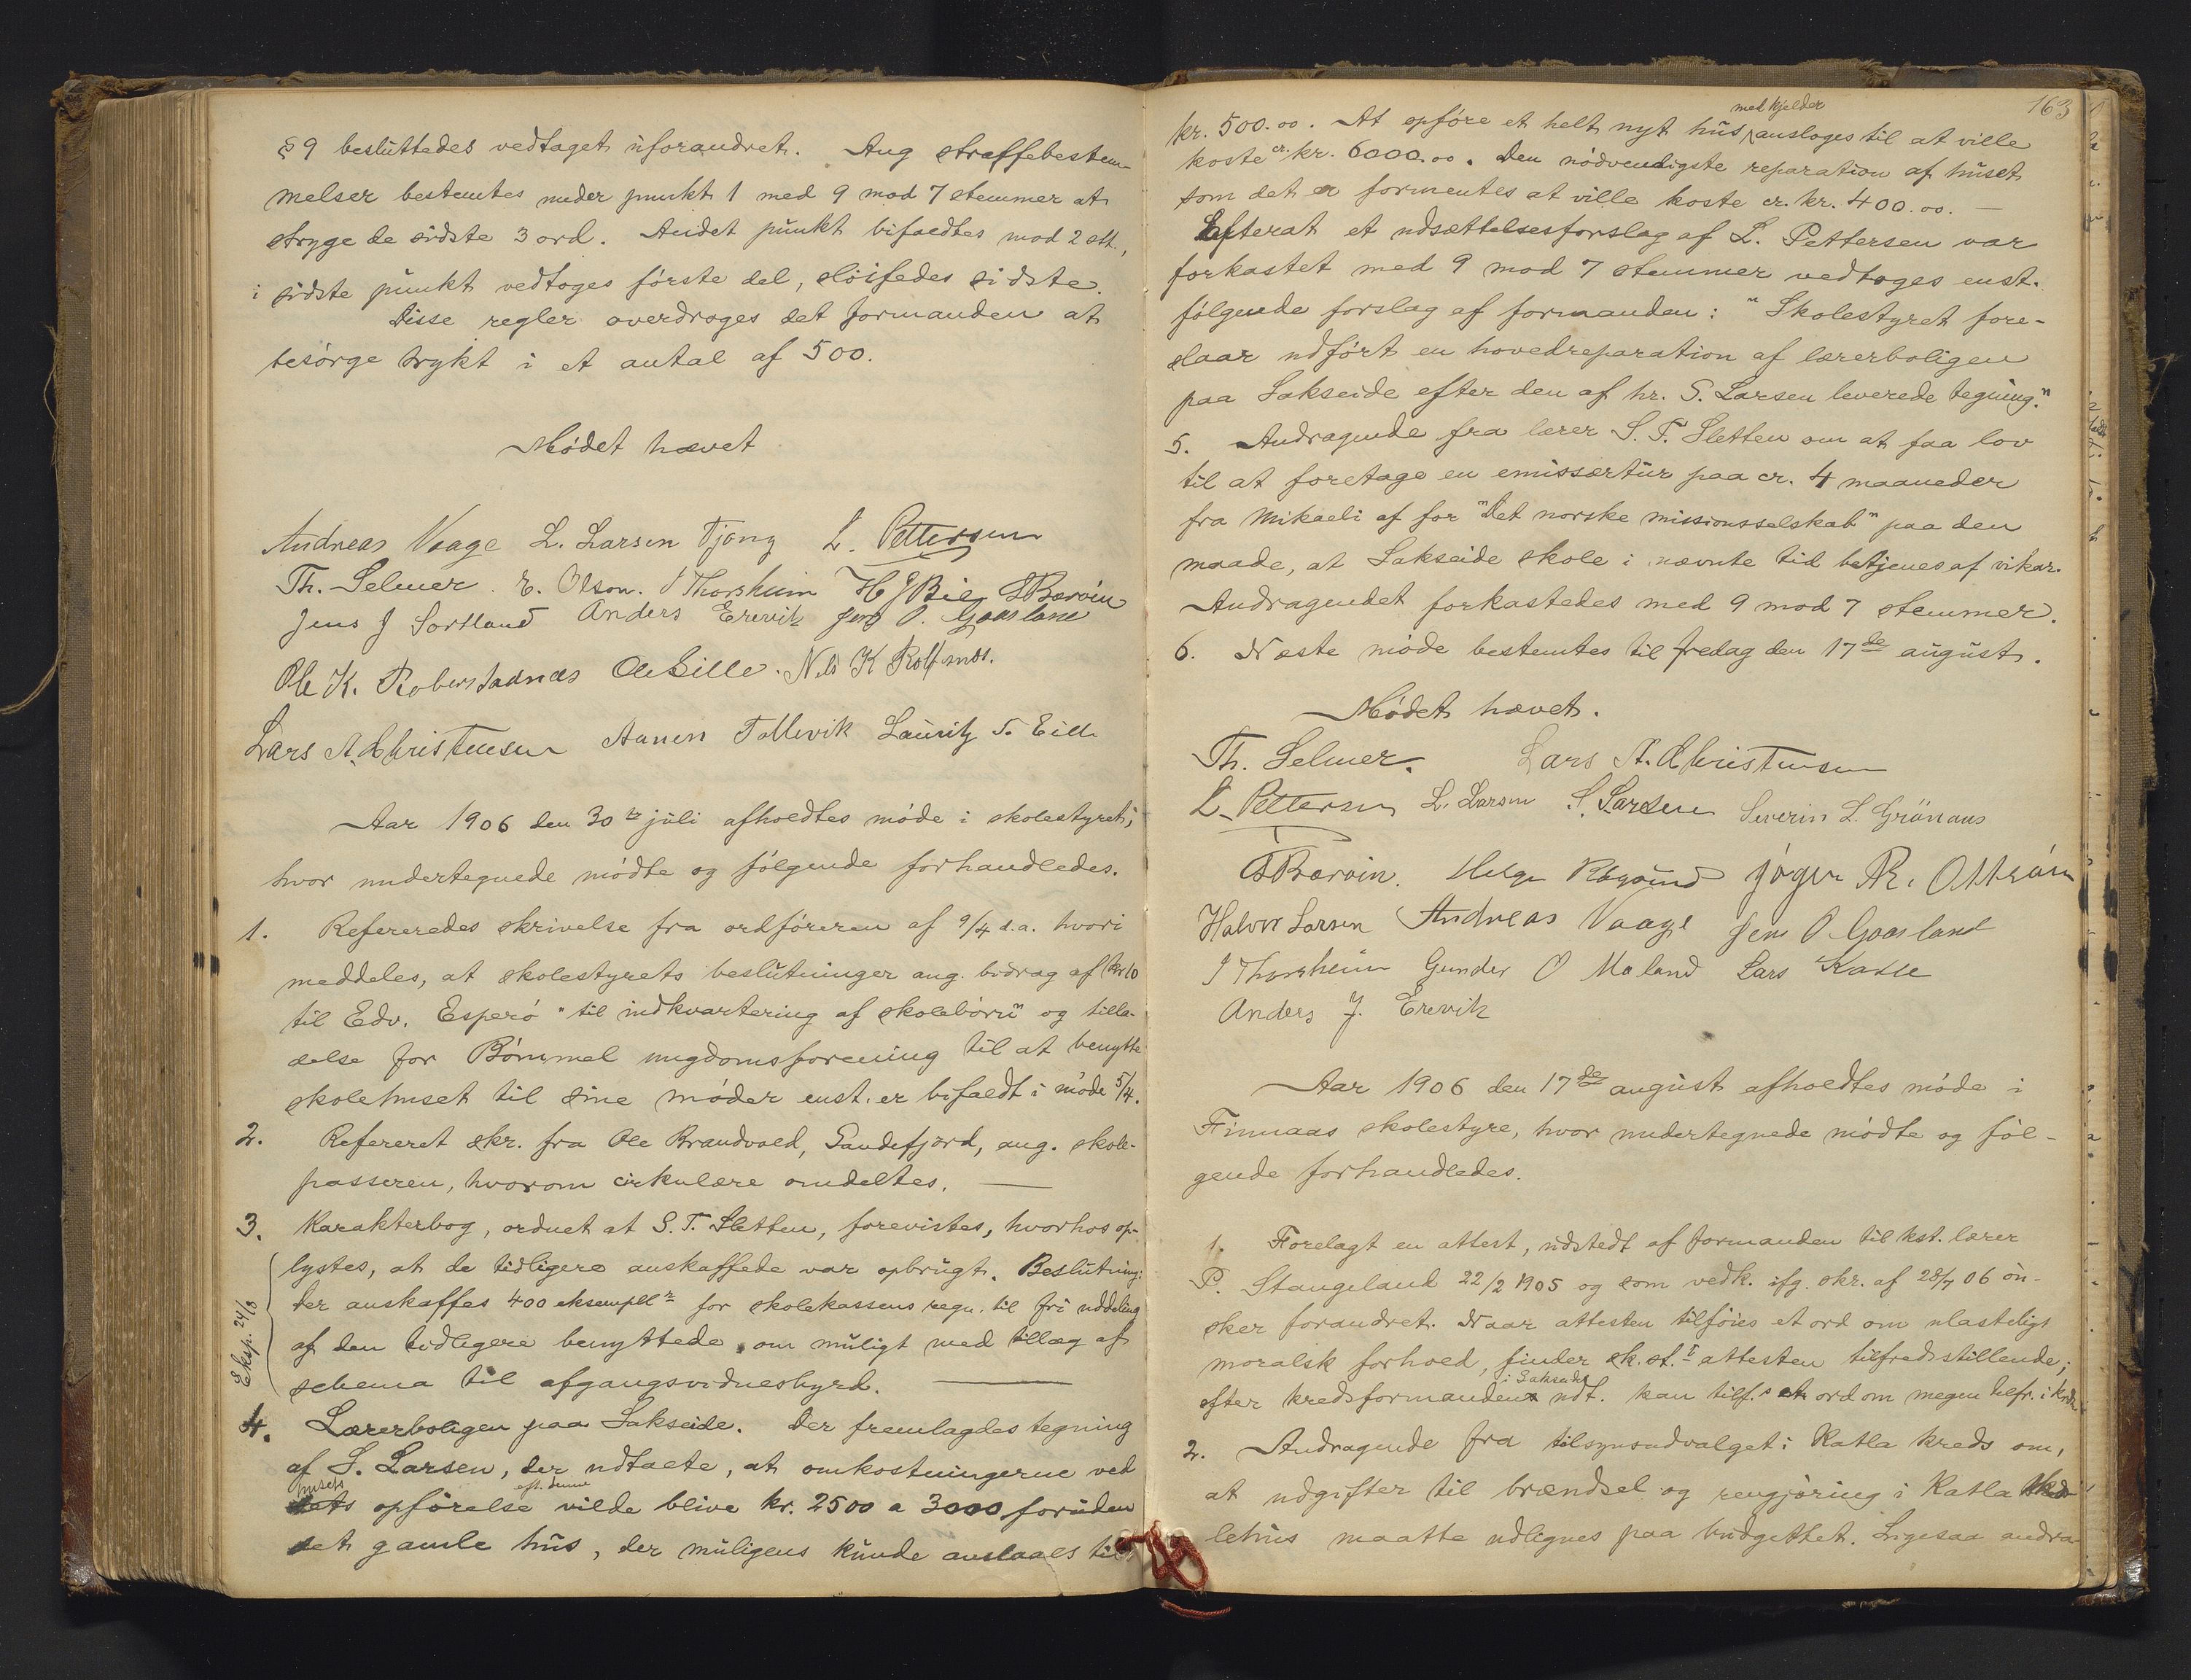 § 9 besluttedes vedtaget uforandret. Ang straffebestem-
melser bestemtes under punkt 1 med 9 mod 7 stemmer at
stryge de sidste 3 ord. Andet punkt bifaldtes mod 2 stt.,
i sidste punkt vedtoges første del, sløifedes sidste.
Disse regler overdroges det formanden at
besørge trykt i et antal af 500.
Mødet hævet
Andreas Vaage L. Larsen Tjong L. Pettersen
Th. Selmer. E. Olson. I Thorsheim H J Bie S Bærøin
Jens J Sortland Anders Erevik Jens O. Gaasland
Ole K. Roberstadnæs Ole Eille. Nils K Rolfsnæs.
Lars A. Christensen Aanen Tollevik Lauritz T. Eille
Aar 1906 den 30te juli afholdtes møde i skolestyret,
hvor undertegnede mødte og følgende forhandledes.
1. Refereredes skrivelse fra ordføreren af 9/4 d.a. hvori
meddeles, at skolestyrets beslutninger ang. bidrag af kr 10
til Edv. Esperø "til indkvartering af skolebørn" og tilla-
delse for Bømmel ungdomsforening til at benytte
skolehuset til sine møder enst. er bifaldt i møde 5/4.
2. Refereret skr. fra Ole Brandvold, Sandefjord, ang. skole-
passeren, hvorom cirkulære omdeltes. —
3. Karakterbog, ordnet at S. T. Sletten, forevistes, hvorhos op-
lystes, at de tidligere anskaffede var opbrugt. Beslutning:
Der anskaffes 400 eksempllr for skolekassens regn. til fri uddeling
af den tidligere benyttede, om muligt med tillæg af
schema til afgangsvidnesbyrd. —
Eksp. 24/8
4. Lærerboligen paa Sakseide. Der fremlagdes tegning
af S. Larsen, der udtalte, at omkostningerne ved
husets opførelse eft. denne vilde blive kr. 2500 a 3000 foruden
det gamle hus, der muligens kunde anslaaes til
163
kr. 500.00. At opføre et helt nyt hus med kjelder ansloges til at ville
koste cr. kr. 6000.00. Den nødvendigste reparation af huset
som det er formentes at ville koste cr. kr. 400.00. —
Efterat et udsættelsesforslag af L. Pettersen var
forkastet med 9 mod 7 stemmer vedtoges enst.
følgende forslag af formanden: "Skolestyret fore-
slaar udført en hovedreparation af lærerboligen
paa Sakseide efter den af hr. S. Larsen leverede tegning."
5. Andragende fra lærer S. T. Sletten om at faa lov
til at foretage en emissærtur paa cr. 4 maaneder
fra Mikaeli af for "Det norske missionsselskab" paa den
maade, at Sakseide skole i nævnte tid betjenes af vikar.
Andragendet forkastedes med 9 mod 7 stemmer.
6. Næste møde bestemtes til fredag den 17de august.
Mødet hævet.
Th. Selmer. Lars A. Christensen
L. Pettersen L. Larsen S. Larsen Severin L. Grönaas
S Bærøin. Helge Røgsund Jøger R. Ottesøn
Halvor Larsen Andreas Vaage Jens O Gaasland
I Thorsheim Gunder O Møland Lars Katle
Anders J. Erevik
Aar 1906 den 17de august afholdtes møde i
Finnaas skolestyre, hvor undertegnede mødte og føl-
gende forhandledes.
1. Forelagt en attest, udstedt af formanden til kst. lærer
P. Stangeland 22/2 1905 og som vedk. ifg. skr. af 28/7 06 øn-
sker forandret. Naar attesten tilføies et ord om ulasteligt
moralsk forhold, finder sk. st. attesten tilfredsstillende;
efter kredsformanden i Sakseide udt. kan tilf. et ord om megen tilfr. i kreds
2. Andragende fra tilsynsudvalget i Katla kreds om,
at udgifter til brændsel og rengjøring i Katla sko-
lehus maatte udlignes paa budgettet. Ligesaa andra-